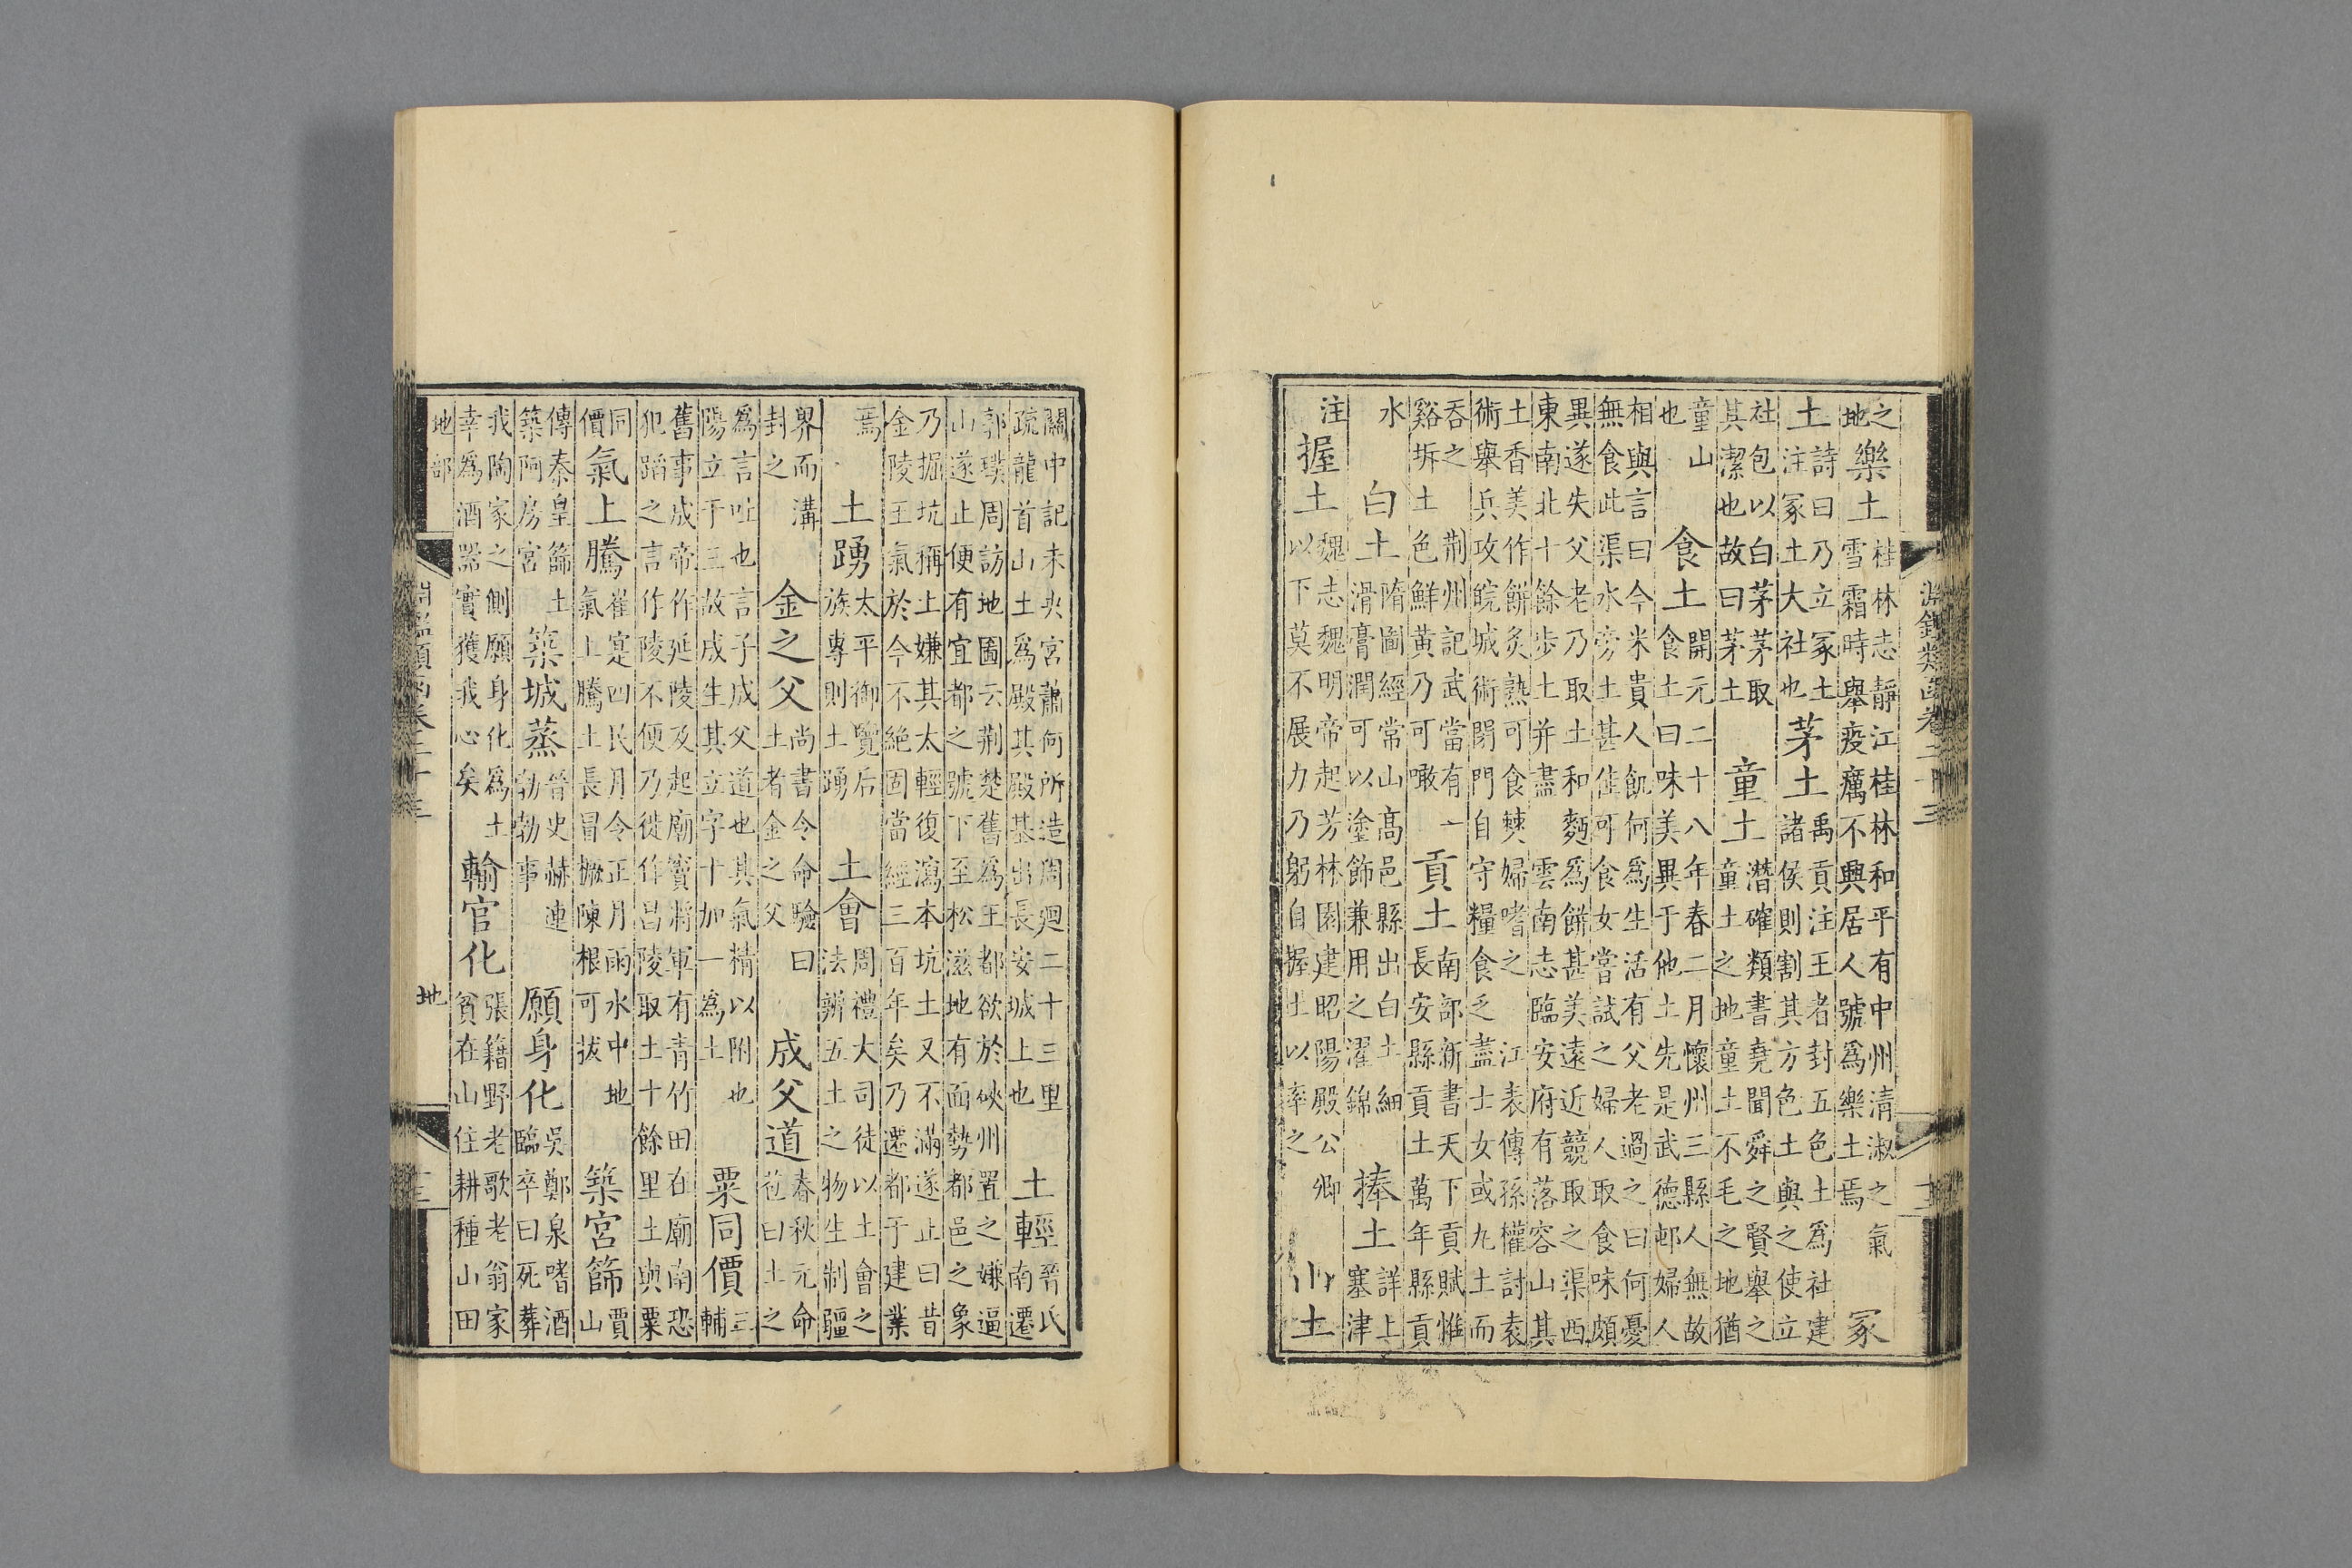 淵鑑類函卷二十三
之地樂土桂林志靜江桂林和平有中州清淑之氣雪霜時舉疫癘不興居人號為樂土焉冢
土詩曰乃立冢土注冢土大社也茅土禹貢注王者封五色土為社建諸侯則割其方色土與之使立
社包以白茅茅取其潔也故曰茅土童土潛確類書堯聞舜之賢舉之童土之地童土不毛之地猶
童山也食土開元二十八年春二月懷州三縣人無故食土曰味美異于他土先是武德邨婦人
相與言曰今米貴人飢何為生活有父老過之曰何憂無食此渠水旁土甚佳可食女嘗試之婦人取食味頗
異遂失父老乃取土和麪為餅甚美遠近競取之渠西東南北十餘步土并盡 雲南志臨安府有落容山其
土香美作餅炙熟可食僰婦嗜之 江表傳孫權討袁術舉兵攻皖城術閉門自守糧食乏盡士女或丸土而
吞之 荆州記武當有一谿坼土色鮮黃乃可噉貢土南部新書天下貢賦惟長安縣貢土萬年縣貢
水白土隋圖經常山高邑縣出白土細滑膏潤可以塗飾兼用之濯錦捧土詳上塞津
注握土魏志魏明帝起芳林園建昭陽殿公卿以下莫不展力乃躬自握土以率之山土
關中記未央宮蕭何所造周廻二十三里疏龍首山土為殿其殿基出長安城上也土輕晉氏南遷
郭璞周訪地圖云荆楚舊為王都欲於峽州置之嫌逼山遂止便有宜都之號下至松滋地有面勢都邑之象
乃掘坑稱上嫌其太輕復瀉本坑土又不滿遂止曰昔金陵王氣於今不絶固當經三百年矣乃遷都于建業
焉土踴太平御覽后族專則土踴土會周禮大司徒以土會之法辨五土之物生制疆
界而溝封之金之父尚書令命驗曰土者金之父成父道春秋元命苞曰土之
為言吐也言子成父道也其氣精以附也陽立于三故成生其立字十加一為土粟同價三輔
舊事成帝作延陵及起廟竇將軍有青竹田在廟南恐犯蹈之言作陵不便乃徙作昌陵取土十餘里土與粟
同價氣上騰崔寔四民月令正月雨水中地氣上騰土長冒橛陳根可拔築宮篩賈山
傳秦皇篩土築阿房宮築城蒸晉史赫連勃勃事願身化吳鄭泉嗜酒臨卒曰死葬
我陶家之側願身化為土幸為酒器實獲我心矣輸官化張籍野老歌老翁家貧在山住耕種山田
地部